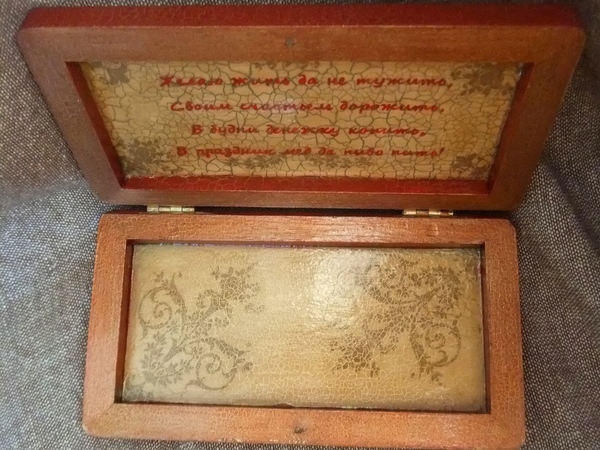 Желаю жить да не тужить,
Своим счастьем дорожить,
В будни денежку копить,
В праздник мёд да пиво пить!